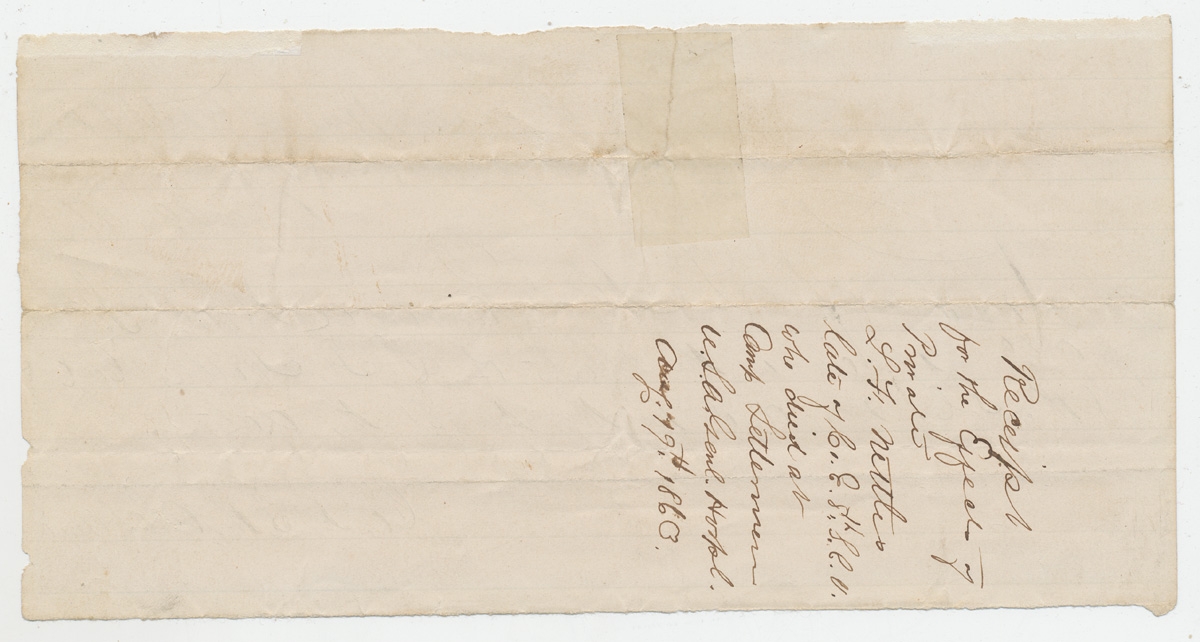 Receipt
for the Effects of
Private
L. F. Nettles
late of Co. E. 8th S.C.V.
who died at
Camp Letterman
U.S.A. Genl. Hospl.
Aug. 19th 1863.